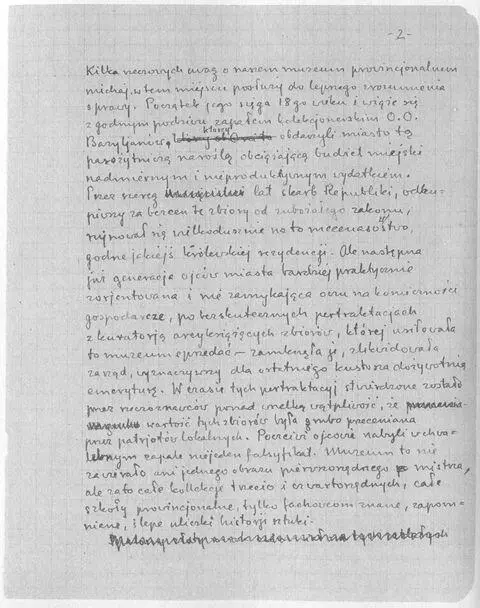 -2-
Kilka rzeczowych uwag o naszem muzeum prowincjonalnem
niechaj w tem miejscu posłuży do lepszego zrozumienia
sprawy. Początek jego sięga 18go wieku i wiąże się
z godnym podziwu zapałem kolekcjonerskim O.O.
Bazyljanów, którzy obdarzyli miasto tą
pasożytniczą naroślą obciążającą budżet miejski
nadmiernym i nieproduktywnym wydatkiem.
Przez szereg lat skarb Republiki, odku-
piwszy za bezcen te zbiory od zubożałego zakonu,
rujnował się wielkodusznie na to mecenasostwo,
godne jakiejś królewskiej rezydencji. Ale następna
już generacja ojców miasta bardziej praktycznie
zorjentowana i nie zamykająca oczu na konieczności
gospodarcze, po bezskutecznych pertraktacjach
z kuratorją arcyksiążęcych zbiorów, której usiłowała
to muzeum sprzedać — zamknęła je, zlikwidowała
zarząd, wyznaczywszy dla ostatniego kustosza dożywotnią
emeryturę. W czasie tych pertraktacyj stwierdzone zostało
przez rzeczoznawców ponad wszelką wątpliwość, że
wartość tych zbiorów była grubo przeceniana
przez patrjotów lokalnych. Poczciwi ojcowie nabyli w chwa-
lebnym zapale niejeden falsyfikat. Muzeum to nie
zawierało ani jednego obrazu pierwszorzędnego mistrza,
ale zato całe kollekcje trzecio i czwartorzędnych, całe
szkoły prowincjonalne, tylko fachowcom znane, zapom-
niane, ślepe uliczki historji sztuki.